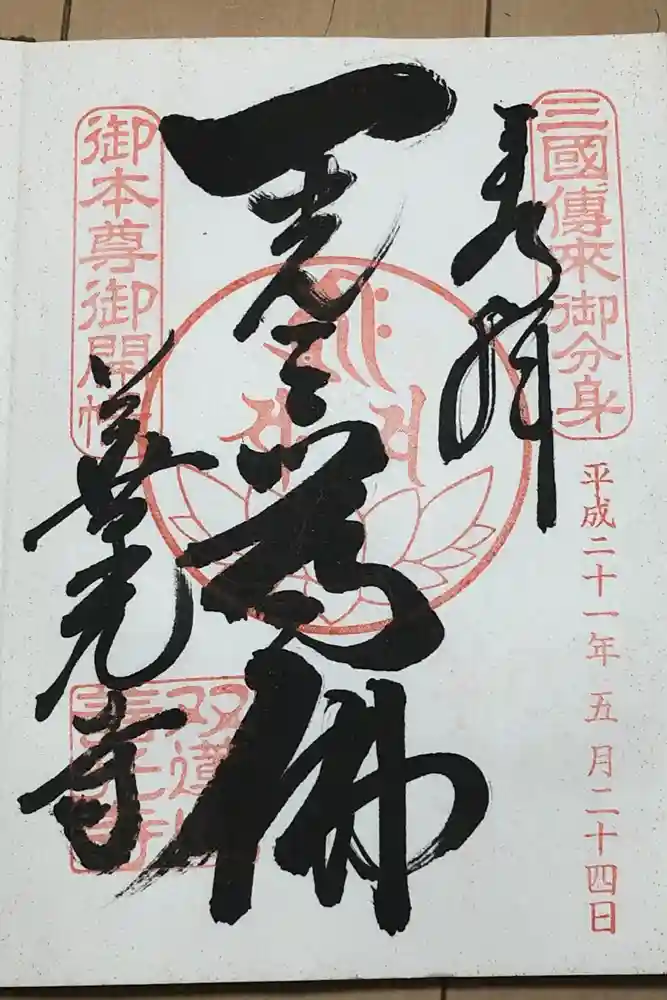 三國傳來御分身
平成二十一年五月二十四日
奉拝
一光三尊佛
御本尊御開帳
善光寺
双蓮山
善光寺